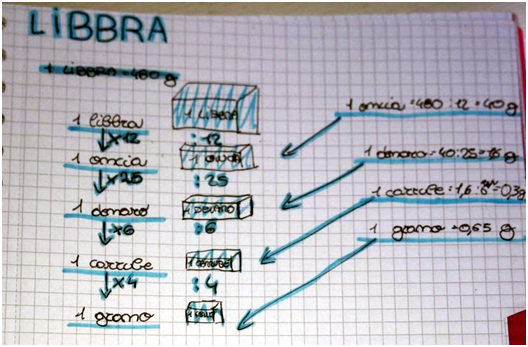 LIBBRA
1 LIBBRA = 480 g
1 libbra
1 LIBBRA
x12
:12
1 oncia
1 ONCIA
x25
:25
1 denaro
1 DENARO
x6
:6
1 carrube
1 CARRUBE
x4
:4
1 grano
1 oncia = 480 : 12 = 40 g
1 denaro = 40 : 25 = 1,6 g
1 carrube = 1,6 : = 0,3 g
1 grano = 0,65 g